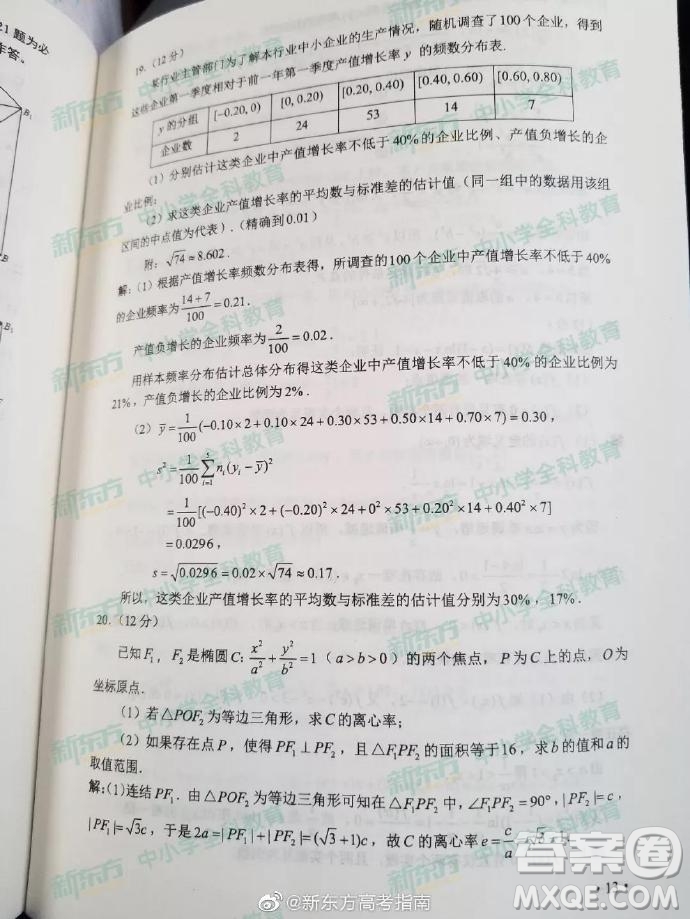 21 题为必
作答。
B₁
B
B₁
19.(12 分)
某行业主管部门为了解本行业中小企业的生产情况，随机调查了100个企业，得到
这些企业第一季度相对于前一年第一季度产值增长率 y 的频数分布表.
y 的分组 [-0.20, 0) [0, 0.20) [0.20, 0.40) [0.40, 0.60) [0.60, 0.80)
企业数 2 24 53 14 7
(1) 分别估计这类企业中产值增长率不低于 40% 的企业比例、产值负增长的企
业比例；
(2) 求这类企业产值增长率的平均数与标准差的估计值（同一组中的数据用该组
区间的中点值为代表）.(精确到 0.01)
附：√74 ≈ 8.602 .
解：(1) 根据产值增长率频数分布表得，所调查的 100 个企业中产值增长率不低于 40%
的企业频率为 (14+7)/100 = 0.21 .
产值负增长的企业频率为 2/100 = 0.02 .
用样本频率分布估计总体分布得这类企业中产值增长率不低于 40% 的企业比例为
21%，产值负增长的企业比例为 2% .
(2) ȳ = 1/100 (-0.10×2+0.10×24+0.30×53+0.50×14+0.70×7) = 0.30 ,
s² = 1/100 ∑_{i=1}^{5} nᵢ(yᵢ-ȳ)²
= 1/100 [(-0.40)²×2+(-0.20)²×24+0²×53+0.20²×14+0.40²×7]
= 0.0296 ,
s = √0.0296 = 0.02×√74 ≈ 0.17 .
所以，这类企业产值增长率的平均数与标准差的估计值分别为 30% , 17% .
20.(12 分)
已知 F₁，F₂ 是椭圆 C: x²/a² + y²/b² = 1（a>b>0）的两个焦点，P 为 C 上的点，O 为
坐标原点.
(1) 若 △POF₂ 为等边三角形，求 C 的离心率；
(2) 如果存在点 P，使得 PF₁ ⊥ PF₂，且 △F₁PF₂ 的面积等于 16，求 b 的值和 a 的
取值范围.
解：(1) 连结 PF₁ . 由 △POF₂ 为等边三角形可知在 △F₁PF₂ 中，∠F₁PF₂ = 90°，|PF₂| = c，
|PF₁| = √3c，于是 2a = |PF₁|+|PF₂| = (√3+1)c，故 C 的离心率 e = c/a = √3-1 .
· 13 ·
新东方 中小学全科教育
@新东方高考指南
答案圈